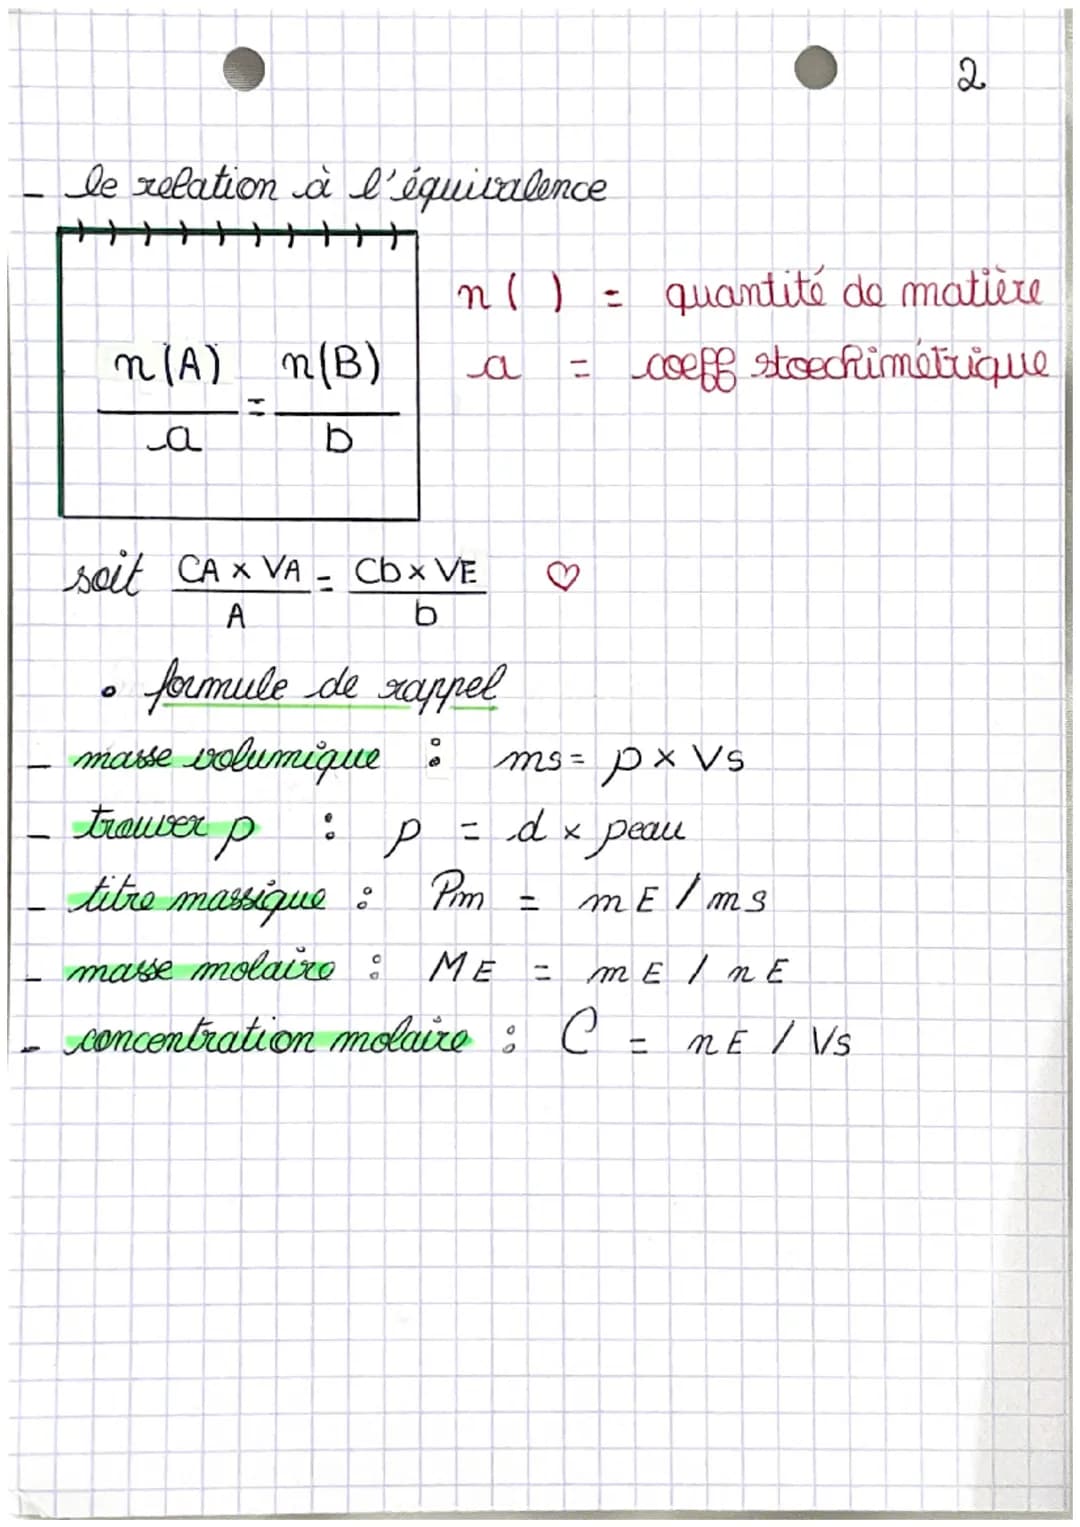 2
- le relation à l'équivalence
n( ) = quantité de matière
n(A)/a = n(B)/b
a = coeff stoechimétrique
soit CA x VA / A = Cb x VE / b ♡
• formule de rappel
- masse volumique : ms = ρ x Vs
- trouver ρ : ρ = d x ρeau
- titre massique : Pm = mE / ms
- masse molaire : ME = mE / nE
- concentration molaire : C = nE / Vs